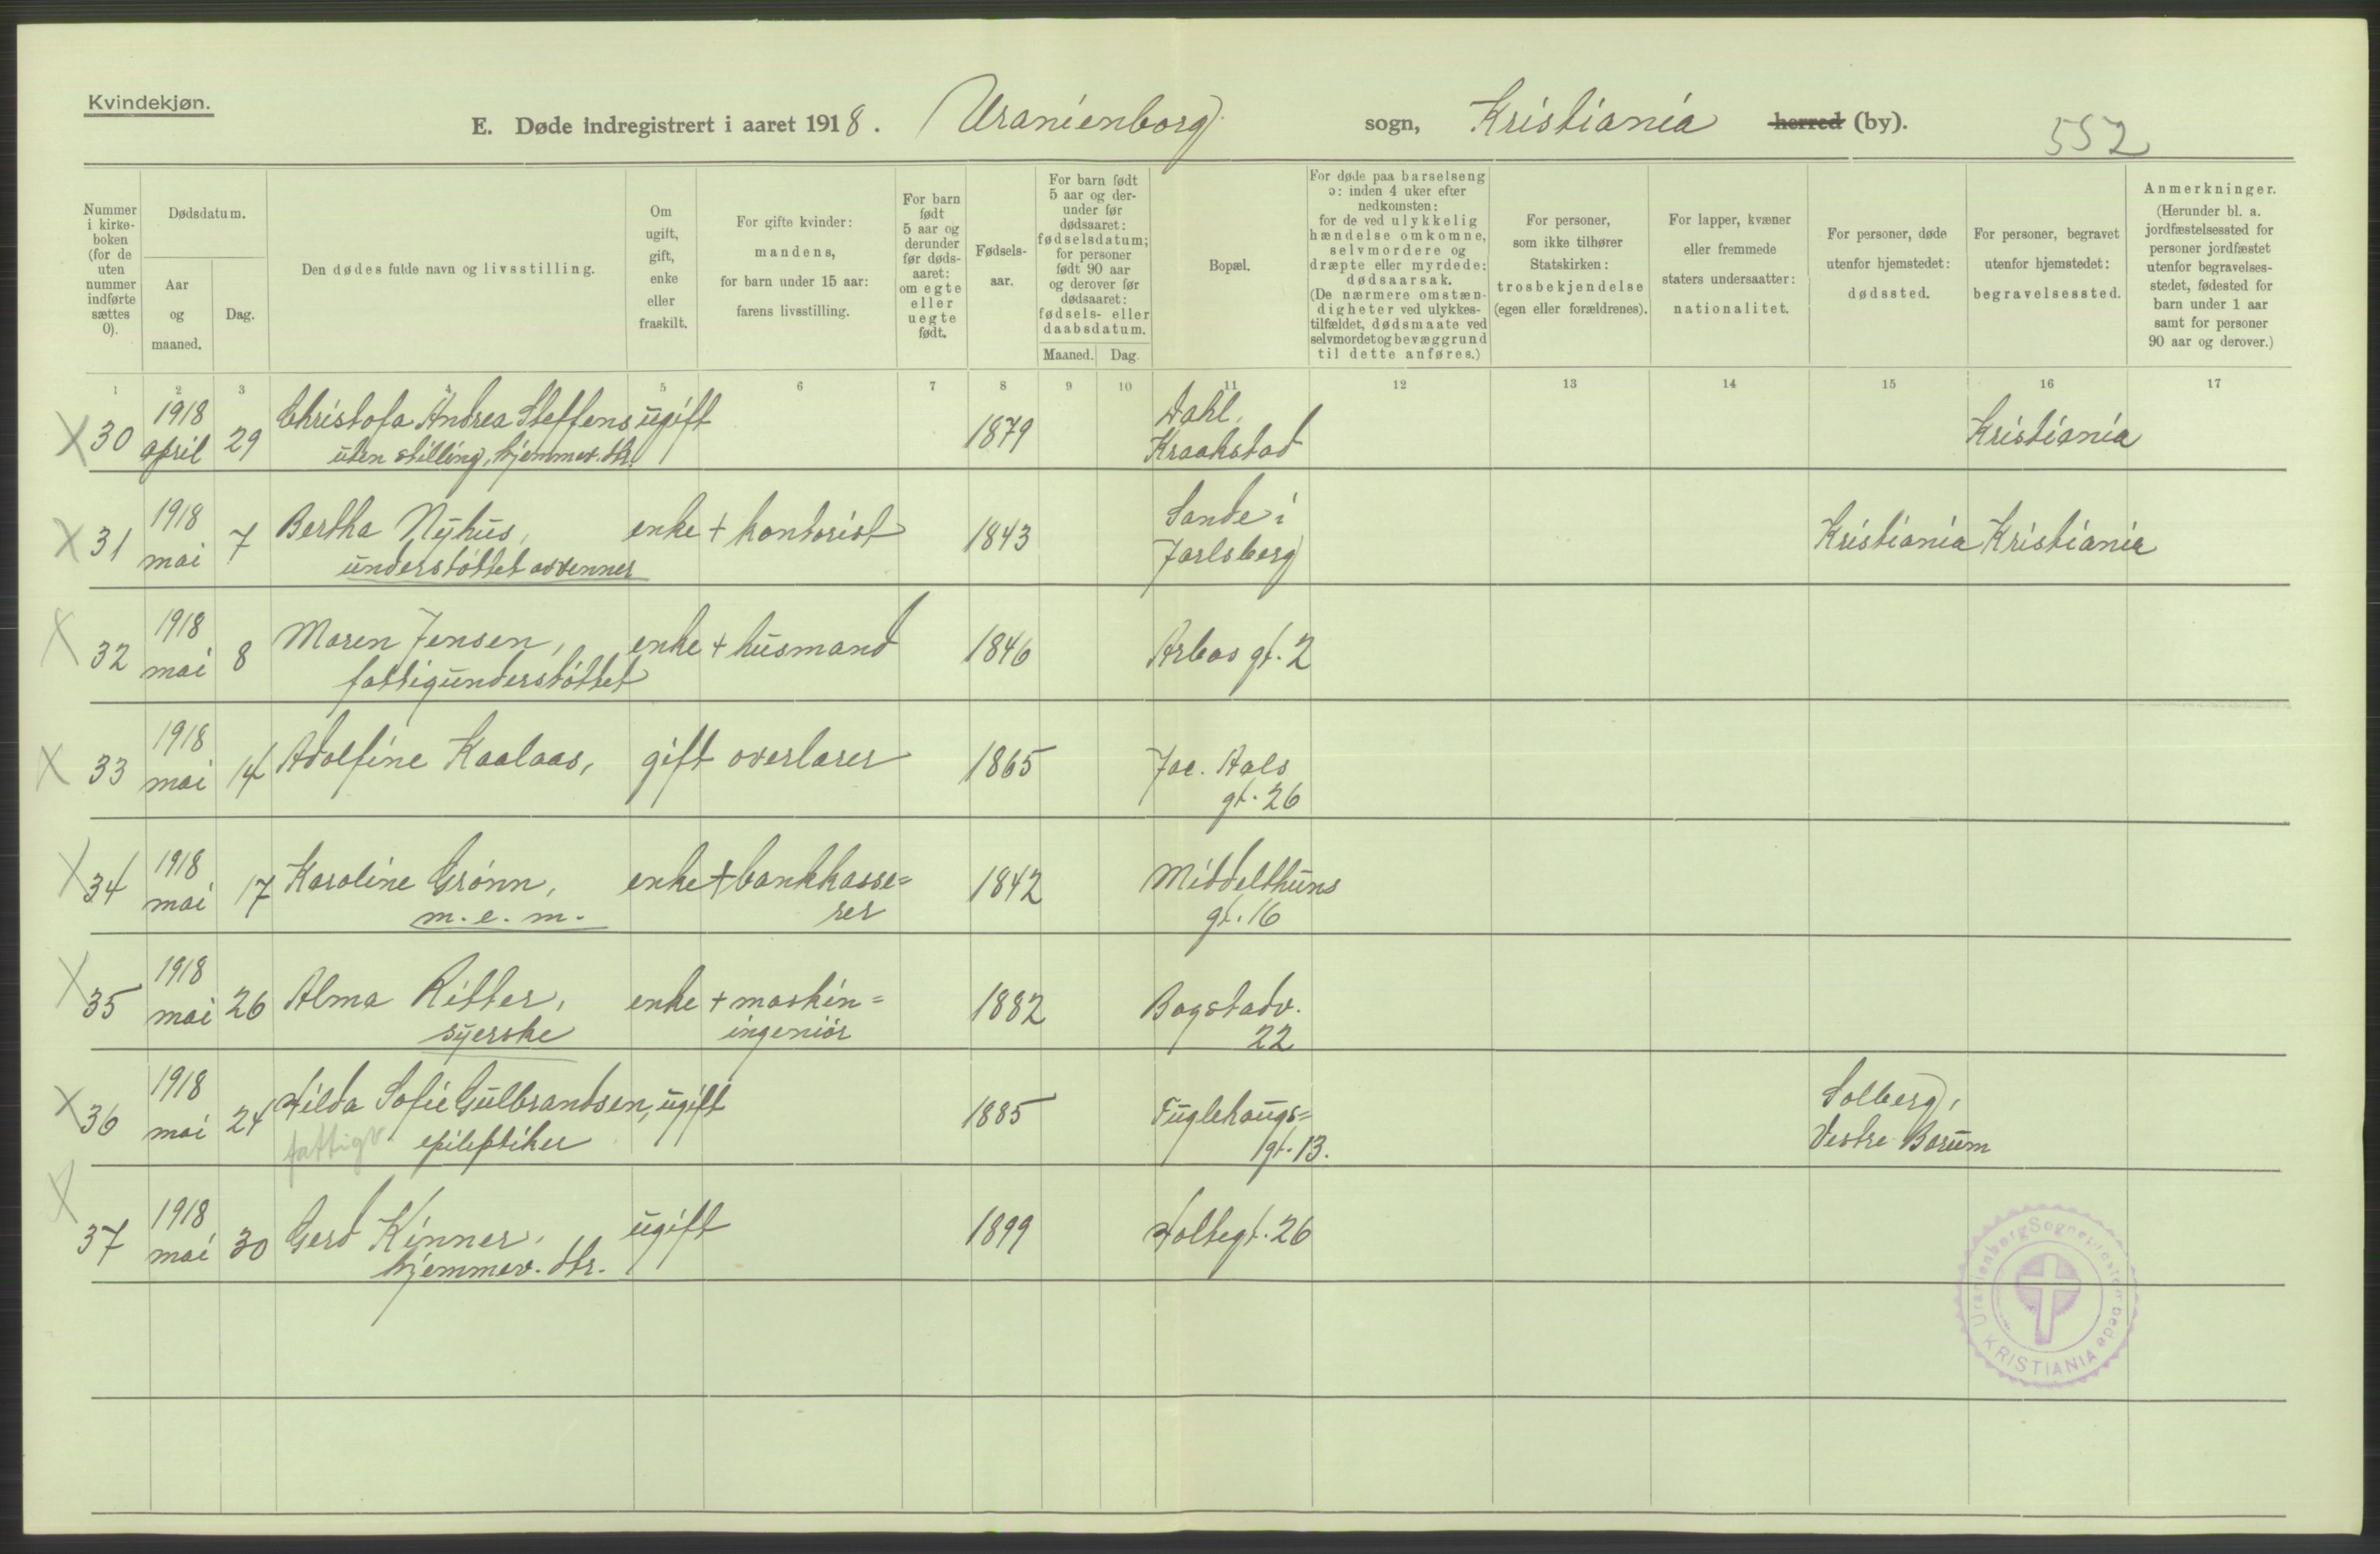 Kvindekjøn.
E. Døde indregistrert i aaret 1918. Uranienborg sogn, Kristiania herred (by).
552
Nummer
i kirke-
boken
(for de
uten
nummer
indførte
sættes
0).
Dødsdatum.
Aar
og
maaned.
Dag.
Den dødes fulde navn og livsstilling.
Om
ugift,
gift,
enke
eller
fraskilt.
For gifte kvinder:
mandens,
for barn under 15 aar:
farens livsstilling.
For barn
født
5 aar og
derunder
før døds-
aaret:
om egte
eller
uegte
født.
Fødsels-
aar.
For barn født
5 aar og der-
under før
dødsaaret:
fødselsdatum;
for personer
født 90 aar
og derover før
dødsaaret:
fødsels- eller
daabsdatum.
Maaned. Dag.
Bopæl.
For døde paa barselseng
ɔ: inden 4 uker efter
nedkomsten:
for de ved ulykkelig
hændelse omkomne,
selvmordere og
dræpte eller myrdede:
dødsaarsak.
(De nærmere omstæn-
digheter ved ulykkes-
tilfældet, dødsmaate ved
selvmordet og bevæggrund
til dette anføres.)
For personer,
som ikke tilhører
Statskirken:
trosbekjendelse
(egen eller forældrenes).
For lapper, kvæner
eller fremmede
staters undersaatter:
nationalitet.
For personer, døde
utenfor hjemstedet:
dødssted.
For personer, begravet
utenfor hjemstedet:
begravelsessted.
Anmerkninger.
(Herunder bl. a.
jordfæstelsessted for
personer jordfæstet
utenfor begravelses-
stedet, fødested for
barn under 1 aar
samt for personer
90 aar og derover.)
1 2 3 4 5 6 7 8 9 10 11 12 13 14 15 16 17
X 30 1918 april 29 Christofa Andrea Steffens ugift 1879 Dahl, Kristiania
uten stilling, hjemmev. dtr. Kraakstad
X 31 1918 mai 7 Bertha Nyhus, enke + kontorist 1843 Sande i Kristiania Kristiania
understøttet av venner Jarlsberg
X 32 1918 mai 8 Maren Jensen, enke + husmand 1846 Arbos gt. 2
fattigunderstøttet
X 33 1918 mai 14 Adolfine Kaalaas, gift overlærer 1865 Jac. Aals
gt. 26
X 34 1918 mai 17 Karoline Grønn, enke + bankkasse=
rer 1842 Middelthuns
m. e. m. gt. 16
X 35 1918 mai 26 Alma Ritter, enke + maskin=
ingeniør 1882 Bogstadv.
syerske 22
X 36 1918 mai 24 Hilda Sofie Gulbrandsen, ugift 1885 Fuglehaugs= Solberg,
fattigv epileptiker gt. 13. Vestre Bærum
X 37 1918 mai 30 Gerd Kinner, ugift 1899 Holtegt. 26
hjemmev. dtr.
Uranienborg Sogneprestembede
KRISTIANIA